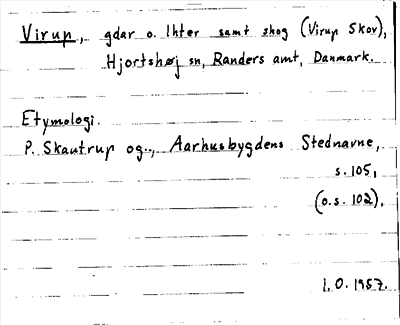 Virup, gdar o. lhter samt skog (Virup Skov),
Hjortshøj sn, Randers amt, Danmark.
Etymologi.
P. Skautrup og.., Aarhusbygdens Stednavne,
s. 105,
(o.s. 102).
I.O. 1957.